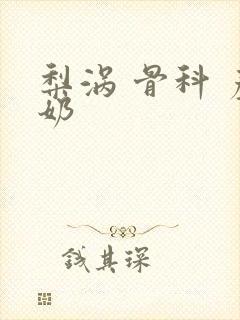 梨涡 骨科
奶
钱其琛